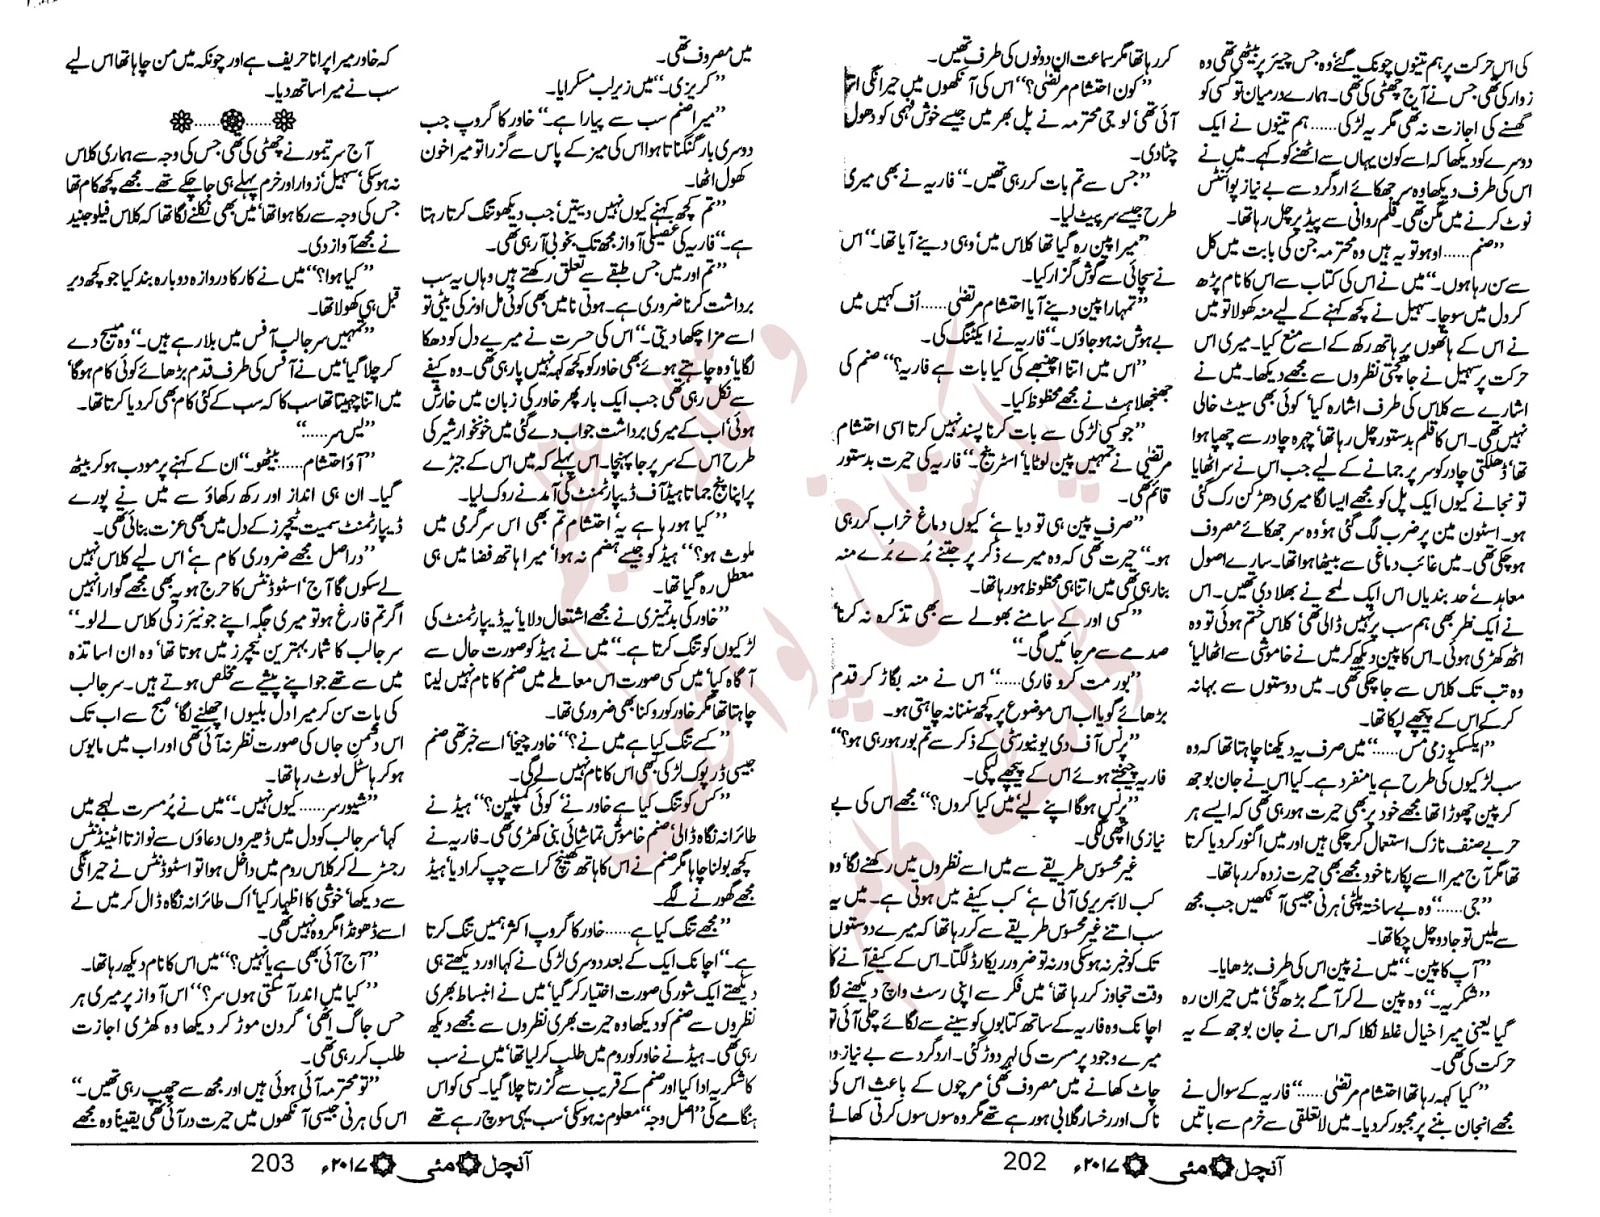 کی اس حرکت پر ہم تینوں چونک گئے‘ وہ جس چیئر پر بیٹھی تھی وہ
زوار کی تھی جس نے آج چھٹی کی تھی۔ ہمارے درمیان تو کسی کو
گھسنے کی اجازت نہ تھی مگر یہ لڑکی...... ہم تینوں نے ایک
دوسرے کو دیکھا کہ اسے کون یہاں سے اٹھنے کو کہے۔ میں نے
اس کی طرف دیکھا وہ سر جھکائے اردگرد سے بے نیاز پوائنٹس
نوٹ کرنے میں مگن تھی۔ قلم روانی سے پیڈ پر چل رہا تھا۔
’’صنم...... اوہو تو یہ ہیں وہ محترمہ جن کی بابت میں کل
سے سن رہا ہوں۔‘‘ میں نے اس کی کتاب سے اس کا نام پڑھ
کر دل میں سوچا۔ سہیل نے کچھ کہنے کے لیے منہ کھولا تو میں
نے اس کے ہاتھوں پر ہاتھ رکھ کے اسے منع کیا۔ میری اس
حرکت پر سہیل نے جانچتی نظروں سے مجھے دیکھا۔ میں نے
اشارے سے کلاس کی طرف اشارہ کیا‘ کوئی بھی سیٹ خالی
نہیں تھی۔ اس کا قلم بدستور چل رہا تھا‘ چہرہ چادر سے چھپا ہوا
تھا‘ ڈھلکتی چادر کو سر پر جمانے کے لیے جب اس نے سر اٹھایا
تو نجانے کیوں ایک پل کو مجھے ایسا لگا میری دھڑکن رک گئی
ہو۔ اسٹون مین پر ضرب لگ گئی ہو‘ وہ سر جھکائے مصروف
ہو چکی تھی۔ میں غائب دماغی سے بیٹھا ہوا تھا۔ سارے اصول
معاہدے‘ حد بندیاں اس ایک لمحے نے بھلا دی تھیں۔ اس
نے ایک نظر بھی ہم سب پر نہیں ڈالی تھی‘ کلاس ختم ہوئی تو وہ
اٹھ کھڑی ہوئی۔ اس کا پین دیکھ کر میں نے خاموشی سے اٹھا لیا‘
وہ تب تک کلاس سے جا چکی تھی۔ میں دوستوں سے بہانہ
کر کے اس کے پیچھے لپکا تھا۔
’’ایکسکیوزمی مس......‘‘ میں صرف یہ دیکھنا چاہتا تھا کہ وہ
سب لڑکیوں کی طرح ہے یا منفرد ہے۔ کیا اس نے جان بوجھ
کر پین چھوڑا تھا‘ مجھے خود پر بھی حیرت ہو رہی تھی کہ ایسے ہر
حربے صنف نازک استعمال کر چکی ہیں اور میں اگنور کر دیا کرتا
تھا مگر آج میرا اسے پکارنا خود مجھے بھی حیرت زدہ کر رہا تھا۔
’’جی......‘‘ وہ بے ساختہ پلٹی‘ ہرنی جیسی آنکھیں جب مجھ
سے ملیں تو جادو چل چکا تھا۔
’’آپ کا پین۔‘‘ میں نے پین اس کی طرف بڑھایا۔
’’شکریہ۔‘‘ وہ پین لے کر آگے بڑھ گئی‘ میں حیران رہ
گیا یعنی میرا خیال غلط نکلا کہ اس نے جان بوجھ کے یہ
حرکت کی تھی۔
’’کیا کہہ رہا تھا احتشام مرتضیٰ......‘‘ فاریہ کے سوال نے
مجھے انجان بننے پر مجبور کر دیا۔ میں لاتعلقی سے خرم سے باتیں
کر رہا تھا مگر سماعت ان دونوں کی طرف تھیں۔
’’کون احتشام مرتضیٰ؟‘‘ اس کی آنکھوں میں حیرانگی اتر
آئی تھی‘ لو جی محترمہ نے پل بھر میں جیسے خوش فہمی کو دھول
چٹا دی۔
’’جس سے تم بات کر رہی تھیں۔‘‘ فاریہ نے بھی میری
طرح جیسے سر پیٹ لیا۔
’’میرا پین رہ گیا تھا کلاس میں‘ وہی دینے آیا تھا۔‘‘ اس
نے سچائی سے گوش گزار کیا۔
’’تمہارا پین دینے آیا احتشام مرتضیٰ...... اُف کہیں میں
بے ہوش نہ ہو جاؤں۔‘‘ فاریہ نے ایکٹنگ کی۔
’’اس میں اتنا اچنبھے کی کیا بات ہے فاریہ؟‘‘ صنم کی
جھنجھلاہٹ نے مجھے محظوظ کیا۔
’’جو کسی لڑکی سے بات کرنا پسند نہیں کرتا اسی احتشام
مرتضیٰ نے تمہیں پین لوٹایا‘ اسٹرینج۔‘‘ فاریہ کی حیرت بدستور
قائم تھی۔
’’صرف پین ہی تو دیا ہے‘ کیوں دماغ خراب کر رہی
ہو۔‘‘ حیرت تھی کہ وہ میرے ذکر پر جتنے بُرے بُرے منہ
بنا رہی تھی میں اتنا ہی محظوظ ہو رہا تھا۔
’’کسی اور کے سامنے بھولے سے بھی تذکرہ نہ کرنا‘
صدمے سے مر جائیں گی۔‘‘
’’بور مت کرو فاری......‘‘ اس نے منہ بگاڑ کر قدم
بڑھائے گویا اب اس موضوع پر کچھ سننا نہ چاہتی ہو۔
’’پرنس آف دی یونیورسٹی کے ذکر سے تم بور ہو رہی ہو؟‘‘
فاریہ چیختے ہوئے اس کے پیچھے لپکی۔
’’پرنس ہوگا اپنے لیے‘ میں کیا کروں؟‘‘ مجھے اس کی بے
نیازی اچھی لگی۔
غیر محسوس طریقے سے میں اسے نظروں میں رکھنے لگا‘ وہ
کب لائبریری آئی ہے‘ کب کیفے میں ہوتی ہے۔ میں یہ
سب اتنے غیر محسوس طریقے سے کر رہا تھا کہ میرے دوستوں
تک کو خبر نہ ہو سکی ورنہ تو ضرور ریکارڈ لگتا۔ اس کے کیفے آنے کا
وقت تجاوز کر رہا تھا‘ میں فکر سے اپنی رسٹ واچ دیکھنے لگا
اچانک وہ فاریہ کے ساتھ کتابوں کو سینے سے لگائے چلی آئی تو
میرے وجود پر مسرت کی لہر دوڑ گئی۔ اردگرد سے بے نیاز وہ
چاٹ کھانے میں مصروف تھی‘ مرچوں کے باعث اس کی
ناک اور رخسار گلابی ہو رہے تھے مگر وہ سوں سوں کرتی کھانے
آنچل مئی ۲۰۱۷ء 202
میں مصروف تھی۔
’’کریزی۔‘‘ میں زیرلب مسکرایا۔
’’میرا صنم سب سے پیارا ہے۔‘‘ خاور کا گروپ جب
دوسری بار گنگناتا ہوا اس کی میز کے پاس سے گزرا تو میرا خون
کھول اٹھا۔
’’تم کچھ کہنے کیوں نہیں دیتیں‘ جب دیکھو تنگ کرتا رہتا
ہے۔‘‘ فاریہ کی غصیلی آواز مجھ تک بخوبی آ رہی تھی۔
’’تم اور میں جس طبقے سے تعلق رکھتے ہیں وہاں یہ سب
برداشت کرنا ضروری ہے۔ ہوتی نا میں بھی کوئی مل اونر کی بیٹی تو
اسے مزا چکھا دیتی۔‘‘ اس کی حسرت نے میرے دل کو دھکا
لگایا‘ وہ چاہتے ہوئے بھی خاور کو کچھ کہہ نہیں پا رہی تھی۔ وہ کیفے
سے نکل رہی تھی جب ایک بار پھر خاور کی زبان میں خارش
ہوئی‘ اب کے میری برداشت جواب دے گئی میں خونخوار شیر کی
طرح اس کے سر پر جا پہنچا۔ اس پہلے کہ میں اس کے جبڑے
پر اپنا پنج جماتا ہیڈ آف ڈیپارٹمنٹ کی آمد نے روک لیا۔
’’کیا ہو رہا ہے یہ‘ احتشام تم بھی اس سرگرمی میں
ملوث ہو؟‘‘ ہیڈ کو جیسے ہضم نہ ہوا‘ میرا ہاتھ فضا میں ہی
معطل رہ گیا تھا۔
’’خاور کی بدتمیزی نے مجھے اشتعال دلایا‘ یہ ڈیپارٹمنٹ کی
لڑکیوں کو تنگ کرتا ہے۔‘‘ میں نے ہیڈ کو صورت حال سے
آگاہ کیا‘ میں کسی صورت اس معاملے میں صنم کا نام نہیں لینا
چاہتا تھا مگر خاور کو روکنا بھی ضروری تھا۔
’’کسے تنگ کیا ہے میں نے؟‘‘ خاور چیخا‘ اسے خبر تھی صنم
جیسی ڈرپوک لڑکی کبھی اس کا نام نہیں لے گی۔
’’کس کو تنگ کیا ہے خاور نے‘ کوئی کمپلین؟‘‘ ہیڈ نے
طائرانہ نگاہ ڈالی‘ صنم خاموش تماشائی بنی کھڑی تھی۔ فاریہ نے
کچھ بولنا چاہا مگر صنم نے اس کا ہاتھ کھینچ کر اسے چپ کرا دیا‘ ہیڈ
مجھے گھورنے لگے۔
’’مجھے تنگ کیا ہے...... خاور کا گروپ اکثر ہمیں تنگ کرتا
ہے۔‘‘ اچانک ایک کے بعد دوسری لڑکی نے کہا اور دیکھتے ہی
دیکھتے ایک شور کی صورت اختیار کر گیا‘ میں نے انبساط بھری
نظروں سے صنم کو دیکھا وہ حیرت بھری نظروں سے مجھے دیکھ
رہی تھی۔ ہیڈ نے خاور کو روم میں طلب کر لیا تھا‘ میں نے سب
کا شکریہ ادا کیا اور صنم کے قریب سے گزرتا چلا گیا۔ کسی کو اس
ہنگامے کی ’’اصل وجہ‘‘ معلوم نہ ہو سکی‘ سب یہی سوچ رہے تھے
کہ خاور میرا پرانا حریف ہے اور چونکہ میں من چاہا تھا اس لیے
سب نے میرا ساتھ دیا۔
آج سر تیمور نے چھٹی کی تھی جس کی وجہ سے ہماری کلاس
نہ ہو سکی‘ سہیل‘ زوار اور خرم پہلے ہی جا چکے تھے۔ مجھے کچھ کام تھا
جس کی وجہ سے رکا ہوا تھا‘ میں بھی نکلنے لگا تھا کہ کلاس فیلو جنید
نے مجھے آواز دی۔
’’کیا ہوا؟‘‘ میں نے کار کا دروازہ دوبارہ بند کیا جو کچھ دیر
قبل ہی کھولا تھا۔
’’تمہیں سر جالب آفس میں بلا رہے ہیں۔‘‘ وہ میسج دے
کر چلا گیا‘ میں نے آفس کی طرف قدم بڑھائے کوئی کام ہوگا‘
میں اتنا چہیتا تھا سب کا کہ سب کے کئی کام بھی کر دیا کرتا تھا۔
’’یس سر......‘‘
’’آؤ احتشام...... بیٹھو۔‘‘ ان کے کہنے پر مودب ہو کر بیٹھ
گیا۔ ان ہی انداز اور رکھ رکھاؤ سے میں نے پورے
ڈیپارٹمنٹ سمیت ٹیچرز کے دل میں بھی عزت بنائی تھی۔
’’دراصل مجھے ضروری کام ہے‘ اس لیے کلاس نہیں
لے سکوں گا آج‘ اسٹوڈنٹس کا حرج ہو یہ بھی مجھے گوارا نہیں
اگر تم فارغ ہو تو میری جگہ اپنے جونیئرز کی کلاس لے لو۔‘‘
سر جالب کا شمار بہترین ٹیچرز میں ہوتا تھا‘ وہ ان اساتذہ
میں سے تھے جو اپنے پیشے سے مخلص ہوتے ہیں۔ سر جالب
کی بات سن کر میرا دل بلیوں اچھلنے لگا‘ صبح سے اب تک
اس دشمن جاں کی صورت نظر نہ آئی تھی اور اب میں مایوس
ہو کر ہاسٹل لوٹ رہا تھا۔
’’شیور سر...... کیوں نہیں۔‘‘ میں نے پُرمسرت لہجے میں
کہا‘ سر جالب کو دل میں ڈھیروں دعاؤں سے نوازتا اٹینڈنٹس
رجسٹر لے کر کلاس روم میں داخل ہوا تو اسٹوڈنٹس نے حیرانگی
سے دیکھا‘ خوشی کا اظہار کیا‘ اک طائرانہ نگاہ ڈال کر میں نے
اسے ڈھونڈا مگر وہ نہیں تھی۔
’’آج آئی بھی ہے یا نہیں؟‘‘ میں اس کا نام دیکھ رہا تھا۔
’’کیا میں اندر آ سکتی ہوں سر؟‘‘ اس آواز پر میری ہر
حس جاگ اٹھی‘ گردن موڑ کر دیکھا وہ کھڑی اجازت
طلب کر رہی تھی۔
’’تو محترمہ آئی ہوئی ہیں اور مجھ سے چھپ رہی تھیں۔‘‘
اس کی ہرنی جیسی آنکھوں میں حیرت در آئی تھی یقیناً وہ مجھے
آنچل مئی ۲۰۱۷ء 203